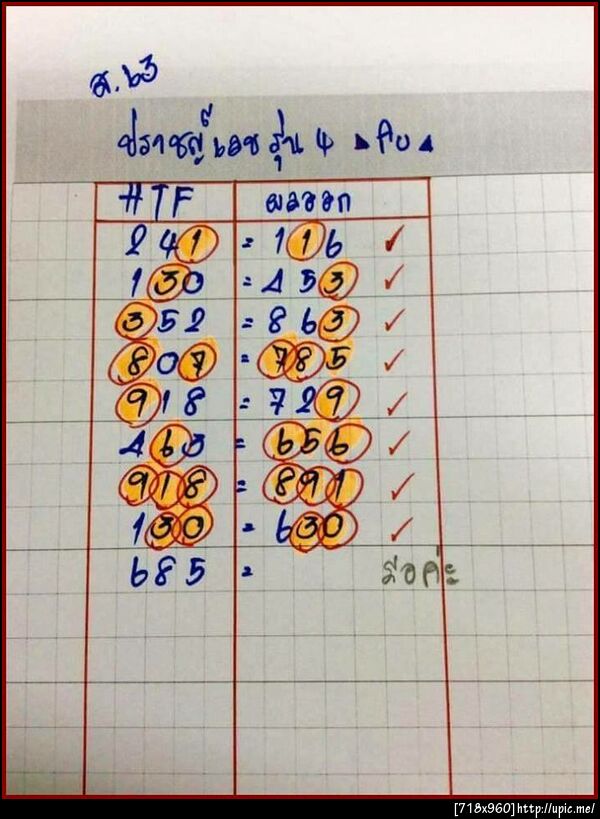 ส.63
ปราชญ์ เลข รุ่น 4 ▲ กบ ▲
HTF ผลออก
241 = 116 ✓
130 = 453 ✓
352 = 863 ✓
807 = 785 ✓
918 = 729 ✓
463 = 656 ✓
918 = 891 ✓
130 = 630 ✓
685 =
[718x960]http://upic.me/